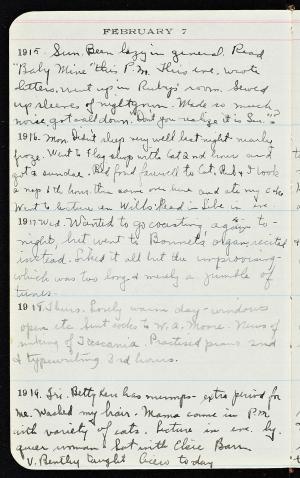 FEBRUARY 7
1915 Sun. Been lazy in general. Read
"Baby Mine" this P.M. This eve. wrote
letters, went up in Ruby's room. Sewed
up sleeves of nightgown. Made so much
noise got call down. "Don't you realize it is Sun.?"
1916. Mon. Didn't sleep very well last night - nearly
froze. Went to Flag shop with Cat 2nd hour and
got a sundae. Bid fond farewell to Cat. Ruby & I took
a nap 6th hour. Then came over here and ate my cakes
Went to lecture on Wills. Read in Libe in eve.
1917 Wed. Wanted to go coasting again to-
night, but went to Bonnet's organ recital
instead. Liked it all but the improvising-
which was too long & merely a jumble of
tunes.
1918 Thurs. Lovely warm day - windows
open etc. Sent socks to W. A. Moore. News of
sinking of Tuscania. Practised piano 2nd
& typewriting 3rd hours.
1919. Fri. Betty Kerr has mumps - extra period for
me. Washed my hair. Mama came in P.M.
with variety of eats. Lecture in eve. by
queer woman. Sat with Claire Barr
V. Bentley taught Cicero today